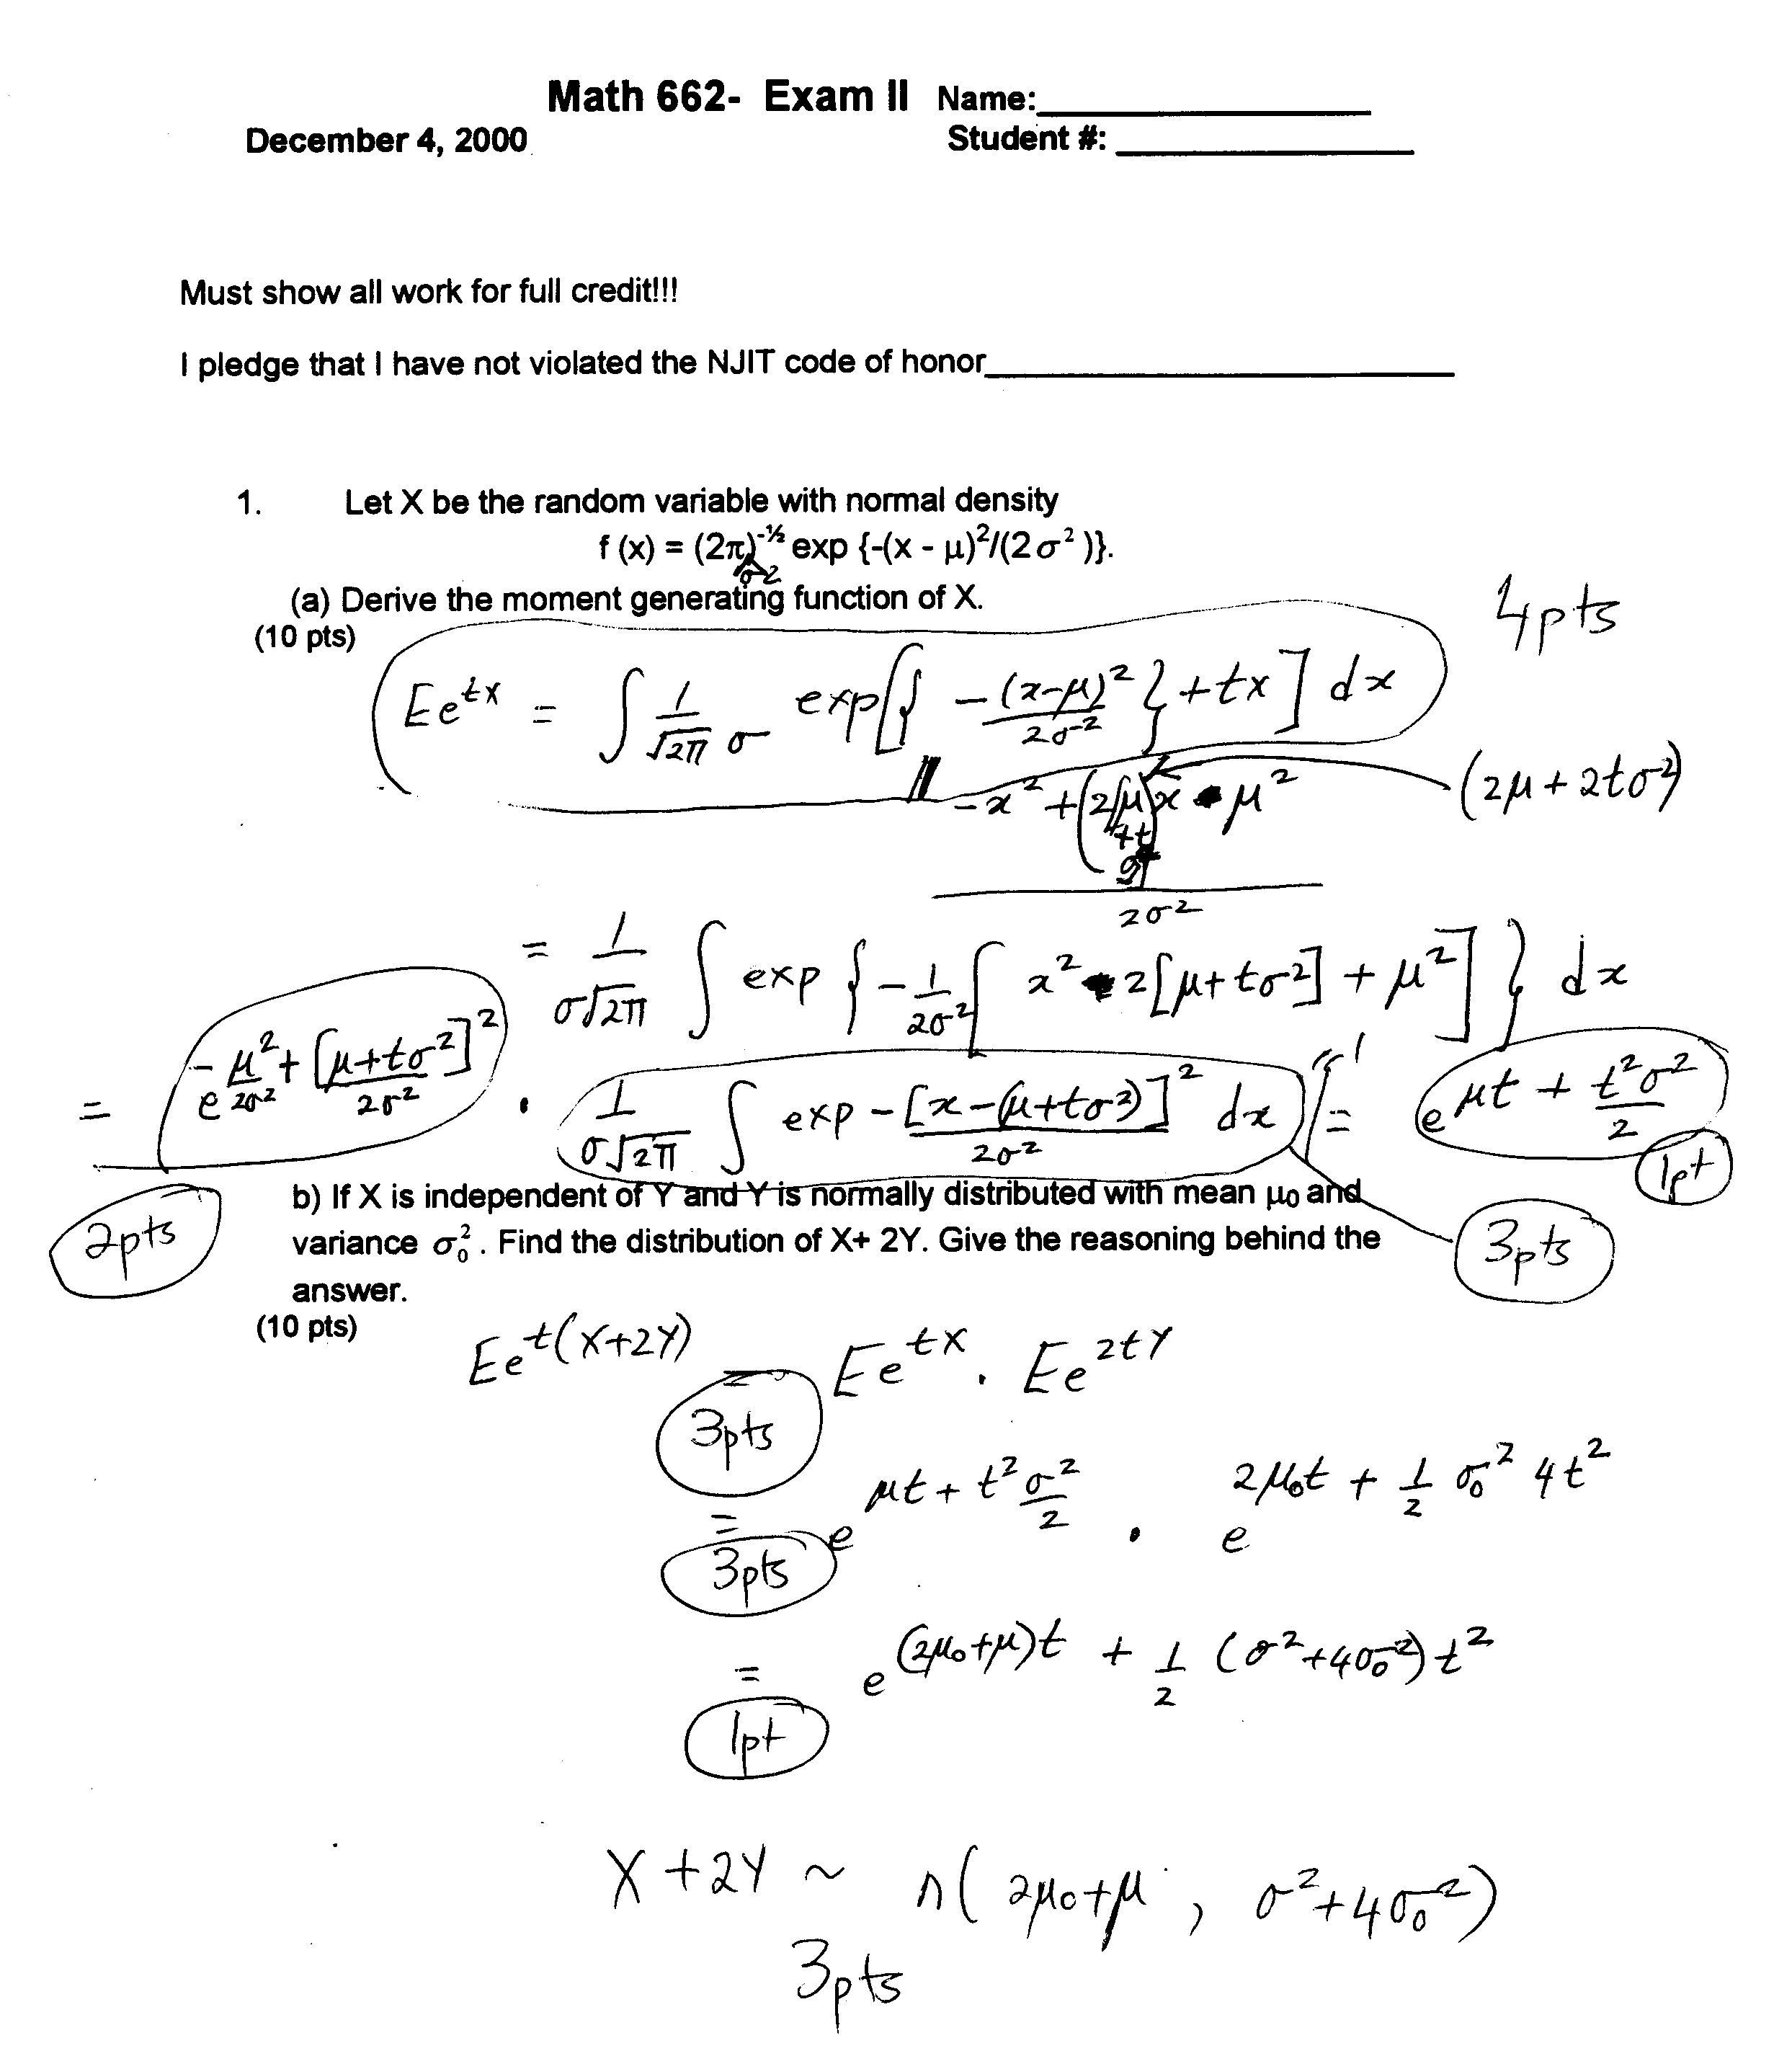 Math 662- Exam II Name:
December 4, 2000 Student #:
Must show all work for full credit!!!
I pledge that I have not violated the NJIT code of honor
1. Let X be the random variable with normal density
f (x) = (2π)^-½ exp {-(x - μ)²/(2σ²)}.
σ²
(a) Derive the moment generating function of X.
4pts
(10 pts)
Ee^tX = ∫ 1/√2π σ exp[{ -(x-μ)²/2σ² } + tx ] dx
-x² + (2μ +t)x μ² / 2σ² (2μ + 2tσ²)
= 1/σ√2π ∫ exp { -1/2σ² [ x² - 2[μ+tσ²] + μ² ] } dx
= e^-μ²/2σ² + [μ+tσ²]²/2σ² · 1/σ√2π ∫ exp -[x-(μ+tσ²)]²/2σ² dx = e^μt + t²σ²/2
1
1pt
2pts
3pts
b) If X is independent of Y and Y is normally distributed with mean μ₀ and
variance σ₀². Find the distribution of X+ 2Y. Give the reasoning behind the
answer.
(10 pts)
Ee^t(X+2Y) = Ee^tX . Ee^2tY
3pts
= e^μt + t²σ²/2 . e^2μ₀t + 1/2 σ₀² 4t²
3pts
= e^(2μ₀+μ)t + 1/2 (σ²+4σ₀²)t²
1pt
X +2Y ~ n( 2μ₀+μ , σ²+4σ₀²)
3pts